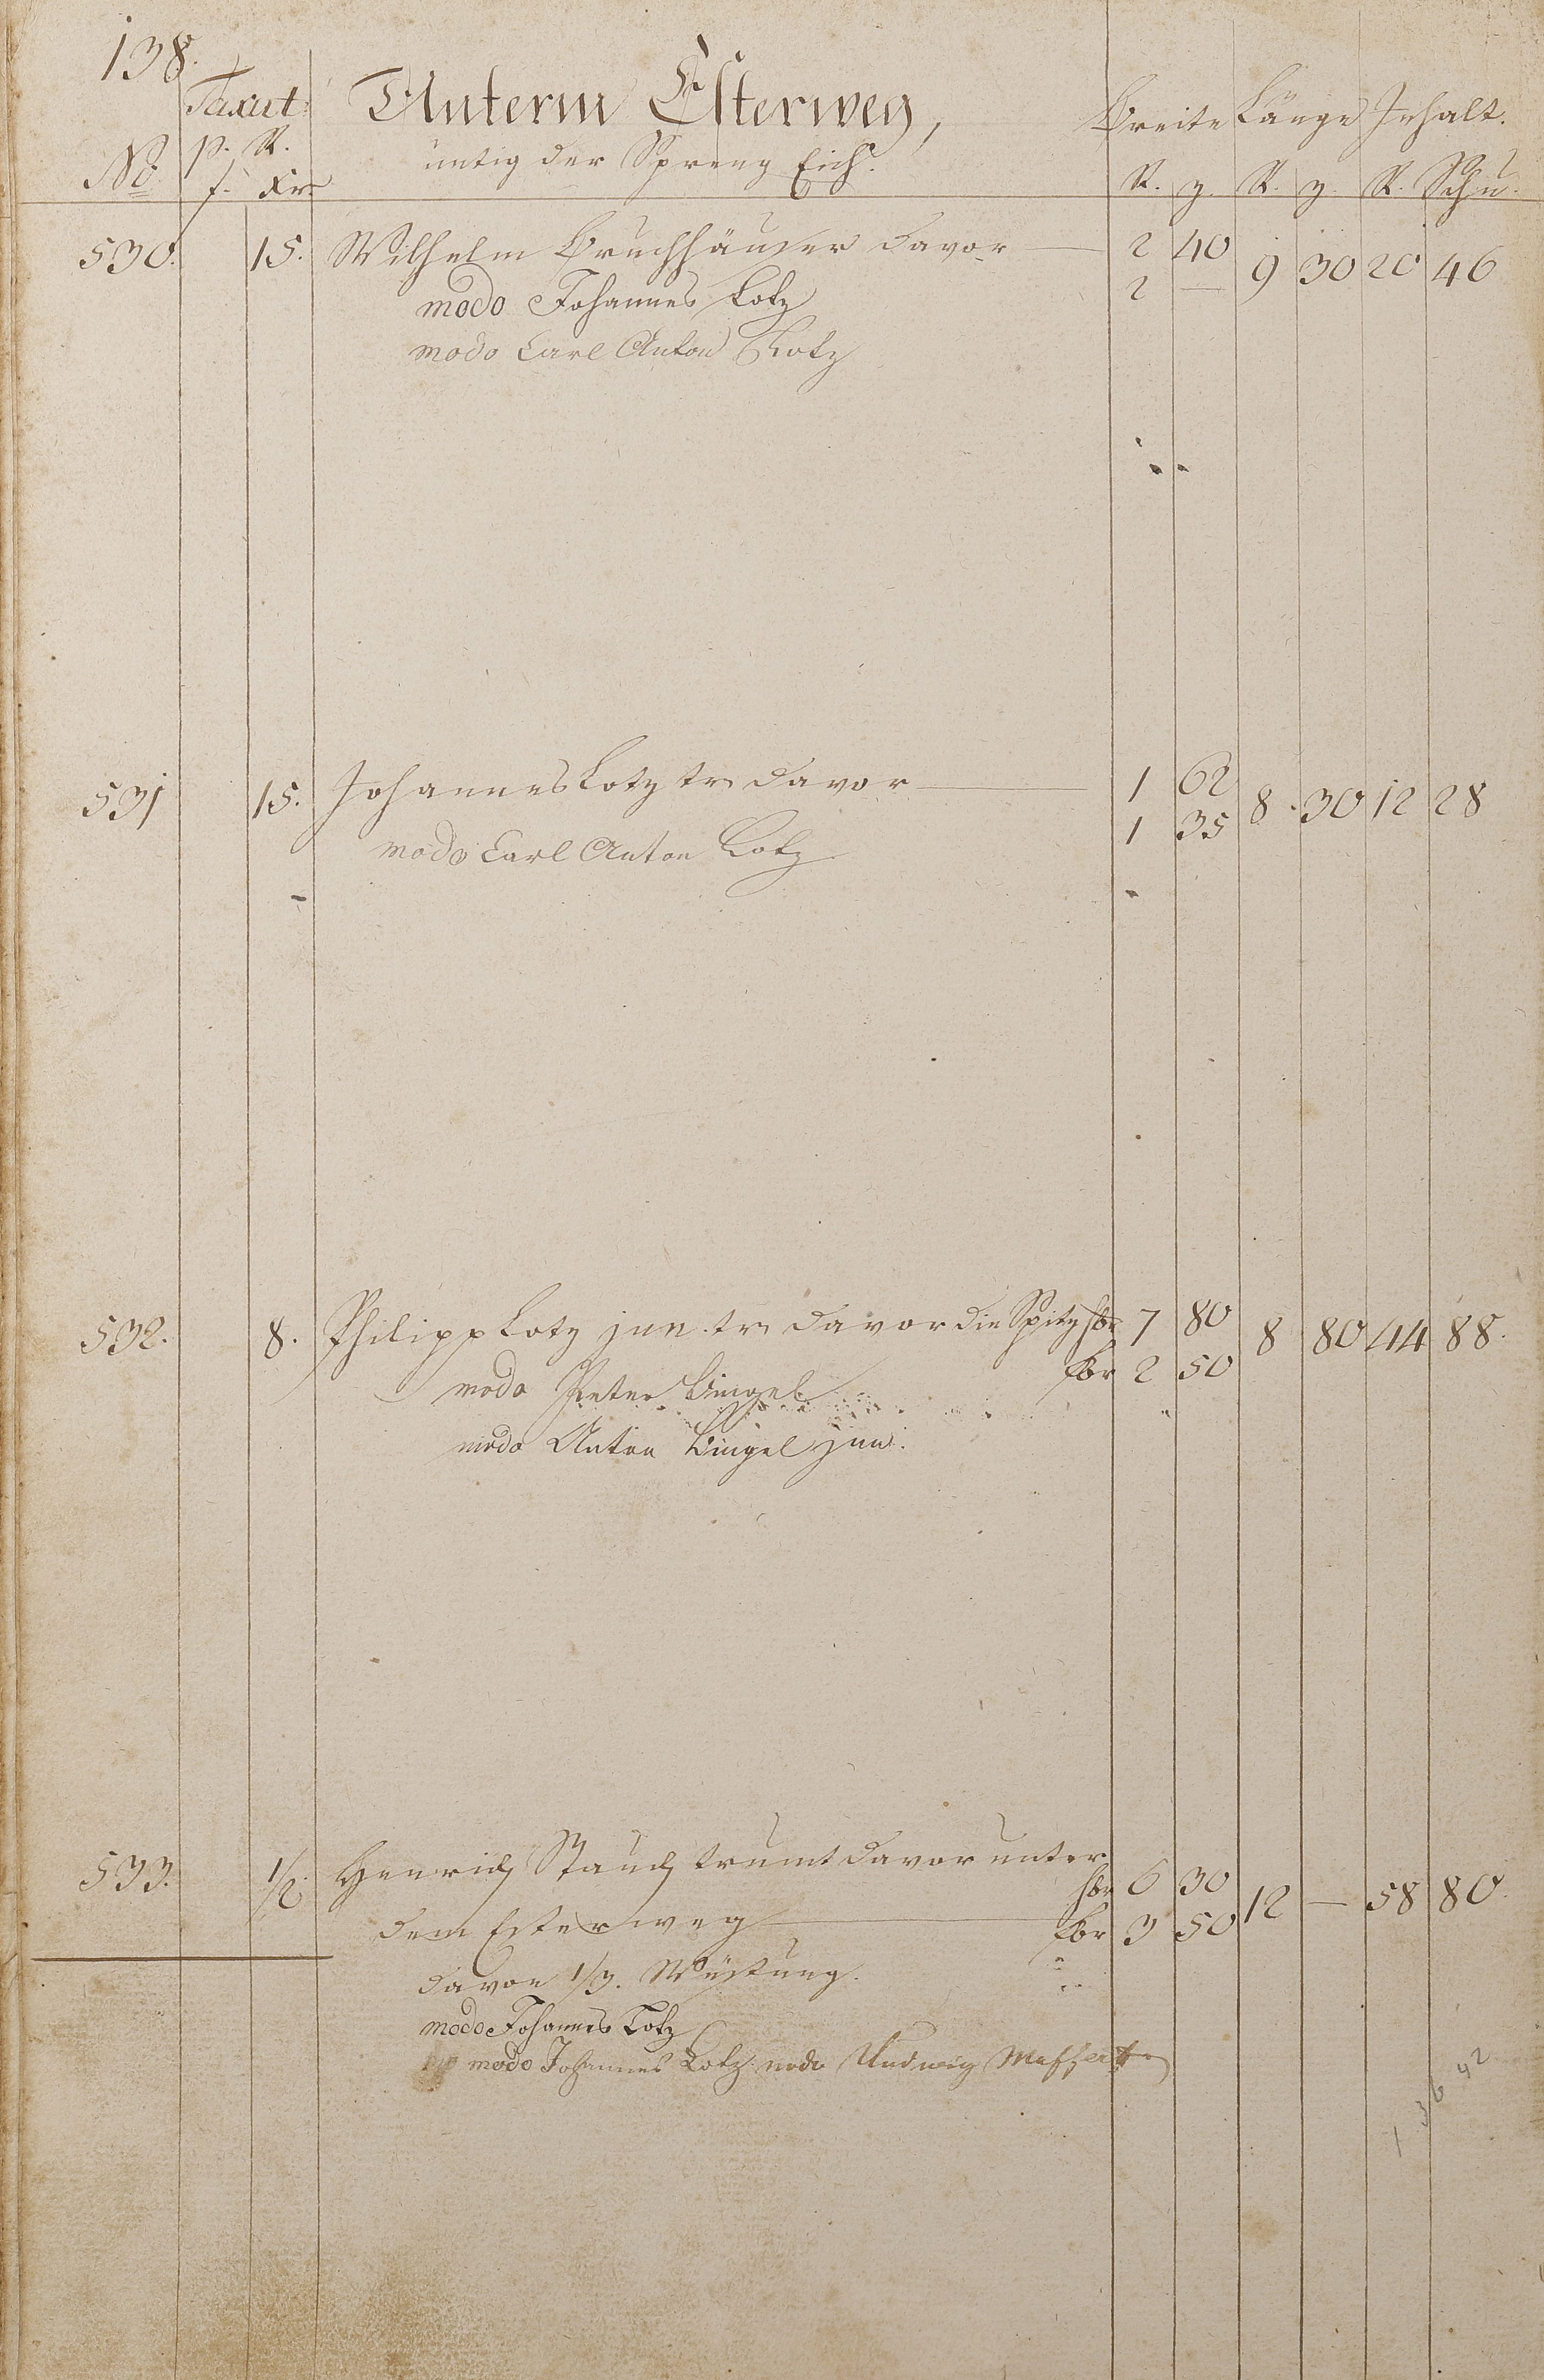 138.
Taxat: Unterm Esterweg, Breite Länge Inhalt.
No p. R. untig der Spreng Eich. R. z. R. z. R. Schu.
f. Xr.
530. 15. Wilhelm Bruchhäuser davor — 2 40 9 30 20 46
modo Johannes Lotz 2 —
modo Carl Anton Lotz
531 15. Johannes Lotz tr. davor — 1 62 8 30 12 28
modo Carl Anton Lotz 1 35
532. 8. Philipp Lotz jun. tr. davor die Spitz hbr 7 80 8 80 44 88.
modo Peter Bingel kbr 2 50
modo Anton Bingel jun.
533. 1/2. Henrich Stauch trumt davor unter hbr 6 30 12 — 58 80.
dem Esterweg — kbr 3 50
davon 1/3. Wüstung.
modo Johannes Lotz
modo Johannes Lotz modo Ludwig Meffert
1 36 42